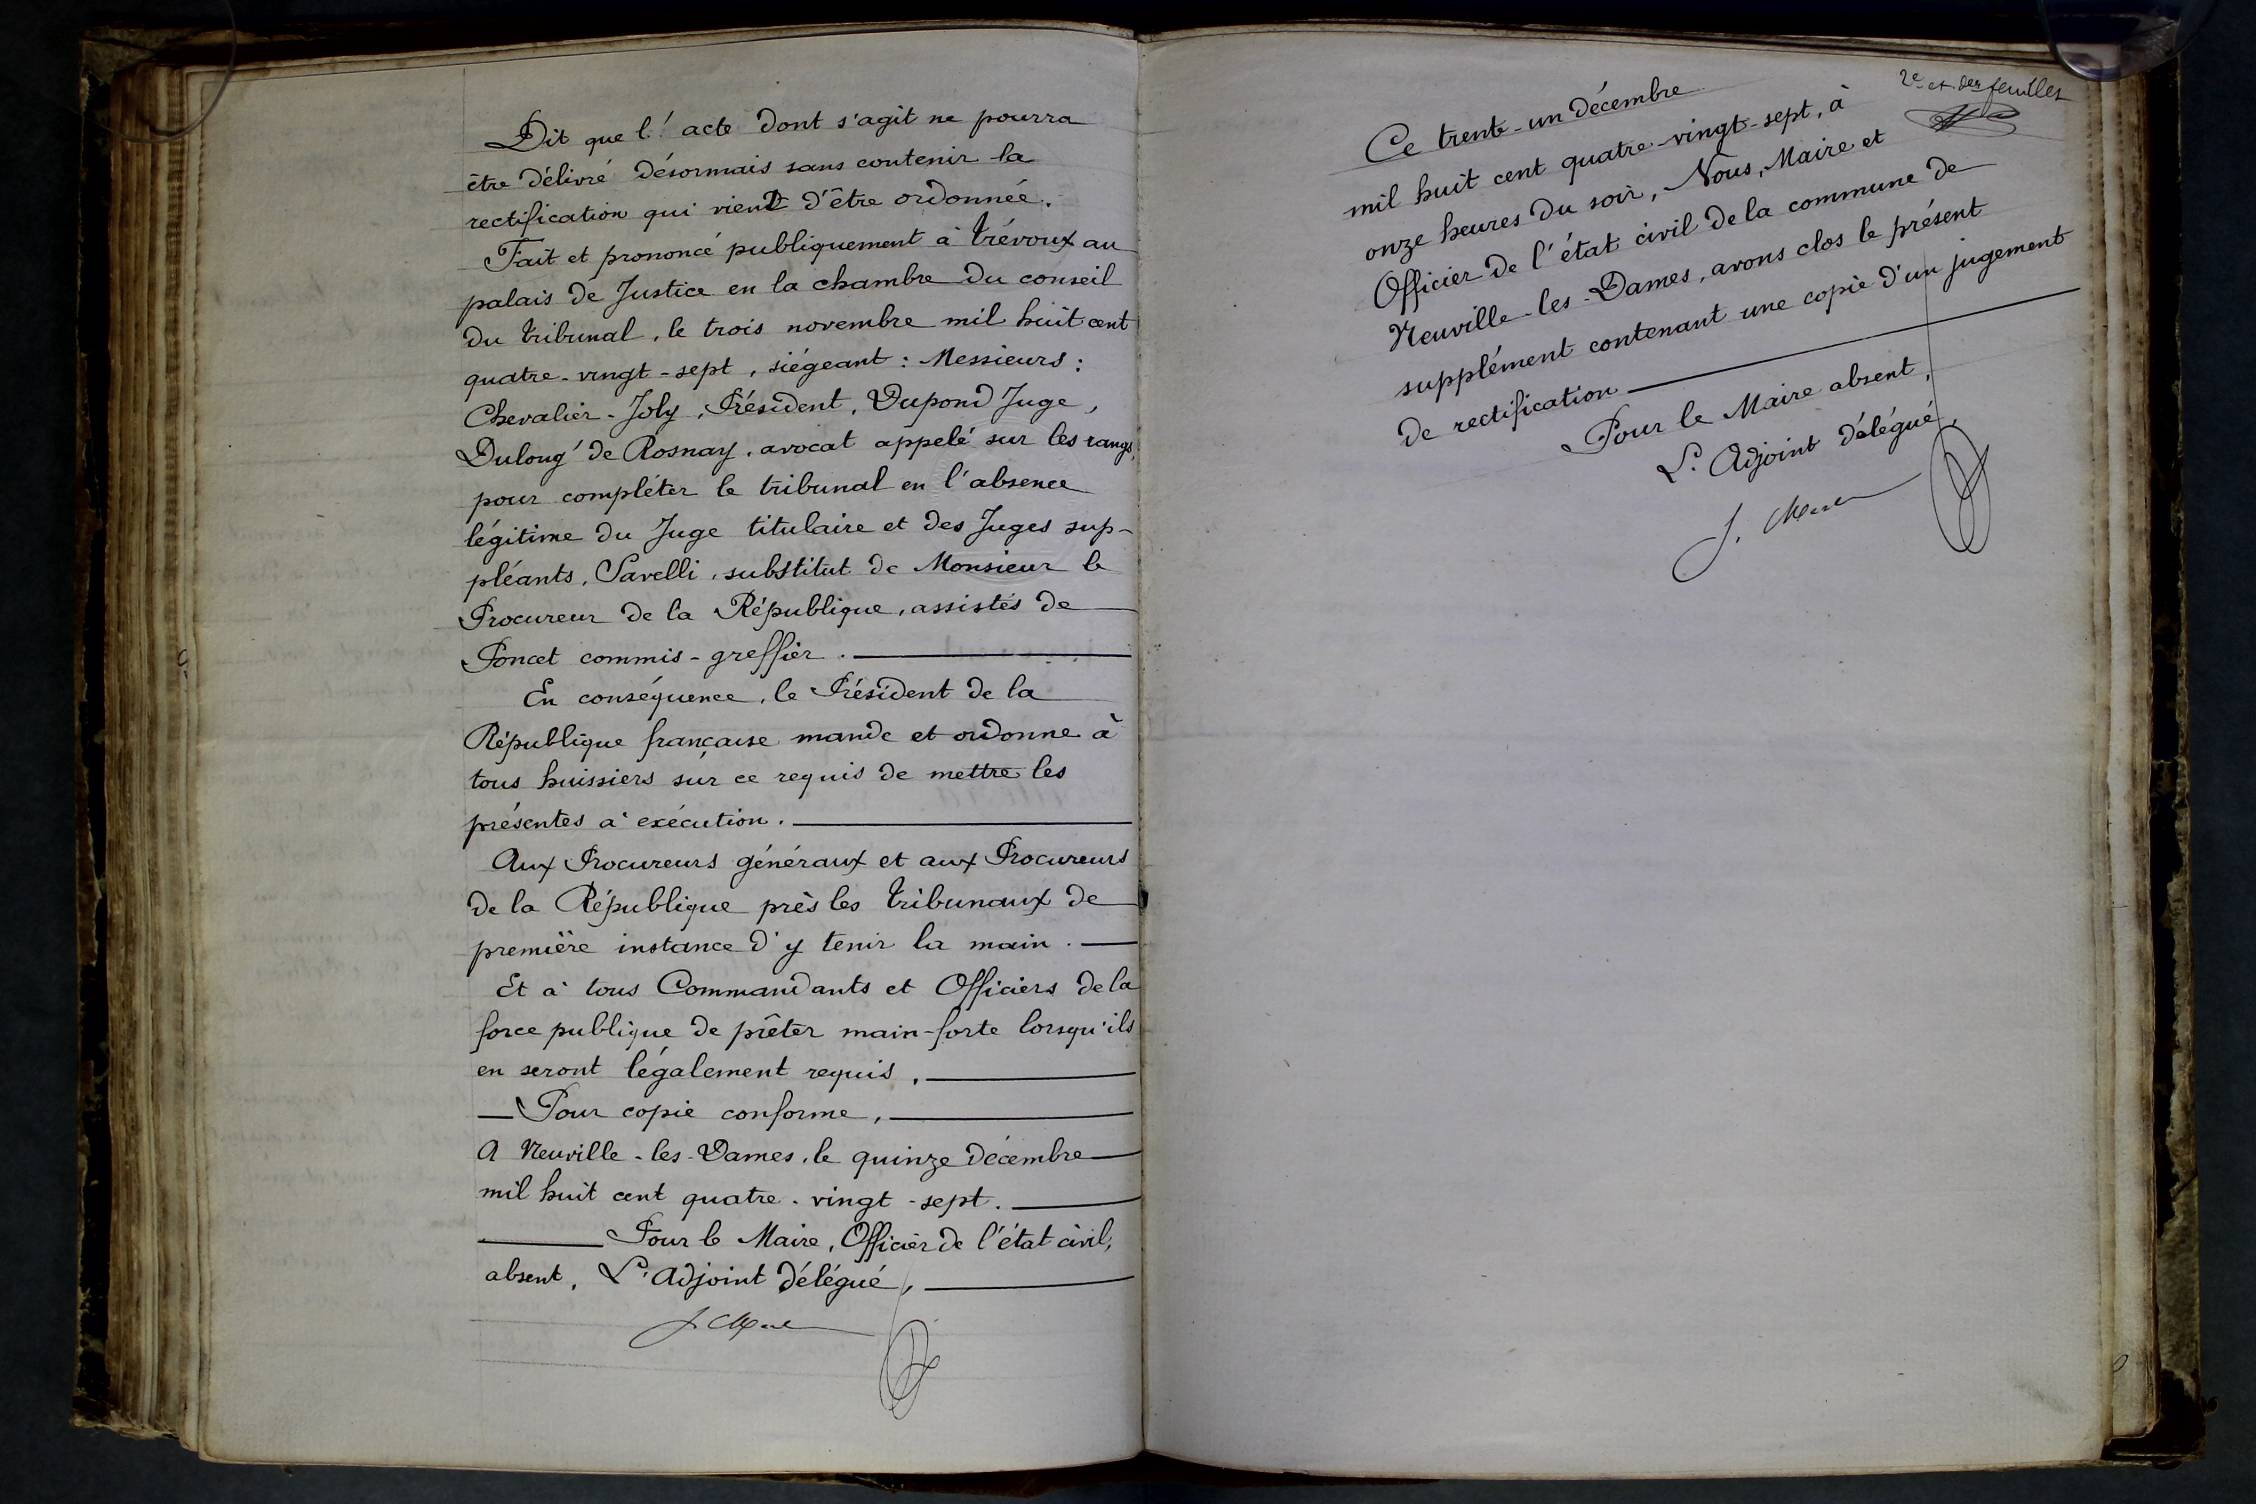 Dit que l'acte dont s'agit ne pourra
être délivré désormais sans contenir la
rectification qui vient d'être ordonnée.
Fait et prononcé publiquement à Trévoux au
palais de Justice en la chambre du conseil
du tribunal, le trois novembre mil huit cent
quatre-vingt-sept, siégeant : Messieurs :
Chevalier-Joly, Président, Dupond Juge,
Dulong de Rosnay, avocat appelé sur les rangs,
pour compléter le tribunal en l'absence
légitime du Juge titulaire et des Juges sup-
pléants, Savelli, substitut de Monsieur le
Procureur de la République, assistés de
Poncet commis-greffier.
En conséquence, le Président de la
République française mande et ordonne à
tous huissiers sur ce requis de mettre les
présentes à exécution.
Aux Procureurs généraux et aux Procureurs
de la République près les tribunaux de
première instance d'y tenir la main.
Et à tous Commandants et Officiers de la
force publique de prêter main-forte lorsqu'ils
en seront légalement requis.
Pour copie conforme,
A Neuville-les-Dames, le quinze décembre
mil huit cent quatre-vingt-sept.
Pour le Maire, Officier de l'état civil,
absent, L'Adjoint délégué,
2e et der feuillet
Ce trente-un décembre
mil huit cent quatre-vingt-sept, à
onze heures du soir, Nous, Maire et
Officier de l'état civil de la commune de
Neuville-les-Dames, avons clos le présent
supplément contenant une copie d'un jugement
de rectification
Pour le Maire absent,
L'Adjoint délégué,